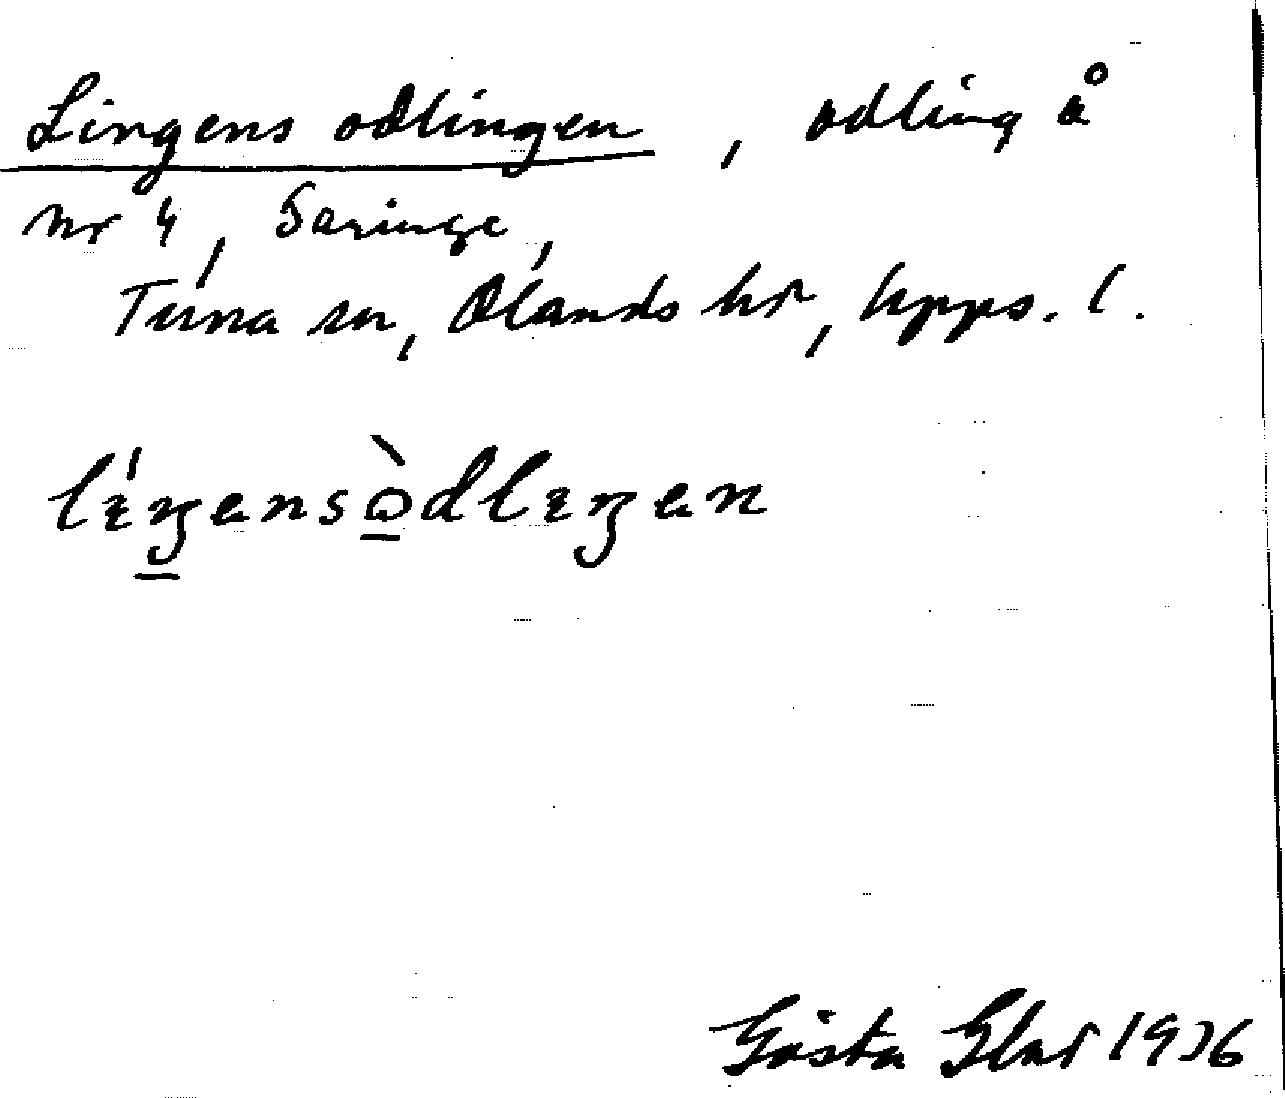 Lingens odlingen, odling å
nr 4, Saringe,
Tuna sn, Olands hr, Upps. l.
lɩ́ŋensòdlɩŋen
Gösta Elar 1936